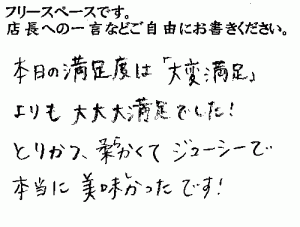 フリースペースです。
店長への一言などご自由にお書きください。
本日の満足度は「大変満足」
よりも大大大満足でした!
とりかつ、柔かくてジューシーで
本当に美味かったです!